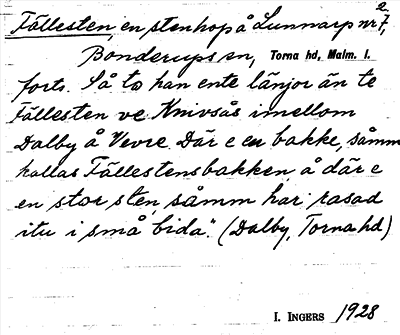 Fällesten, en stenhop å Lunnarp nr 7,²
Bonderups sn, Torna hd, Malm. l.
forts. Så to han ente länjor än te
Fällesten ve Knivsås imellom
Dalby å Vevre. Där e en bakke, såmm
kallas Fällestensbakken, å där e
en stor sten såmm har rasad
itu i små bida." (Dalby, Torna hd)
I. INGERS 1928